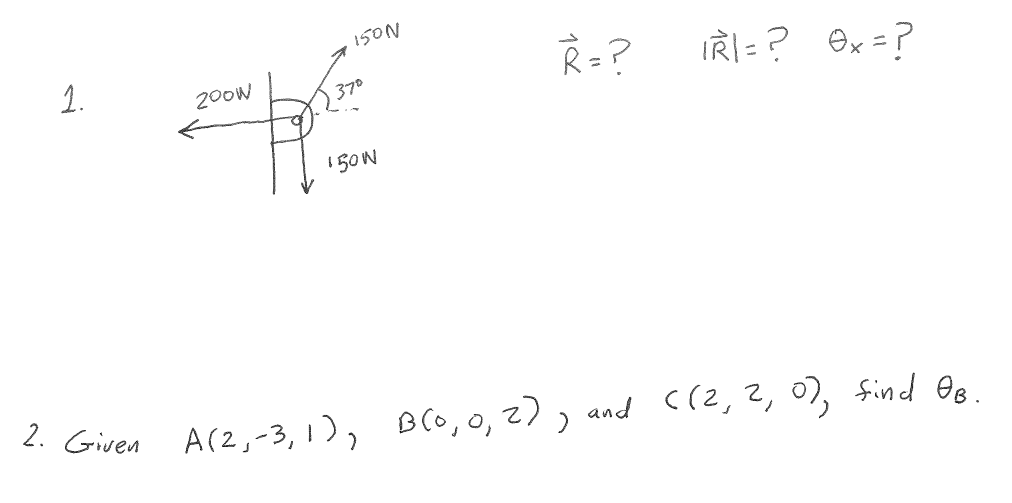 1. 200N 150N 37° 150N R⃗=? |R⃗|=? θx=?
2. Given A(2,-3,1), B(0,0,2), and C(2,2,0), find θB.